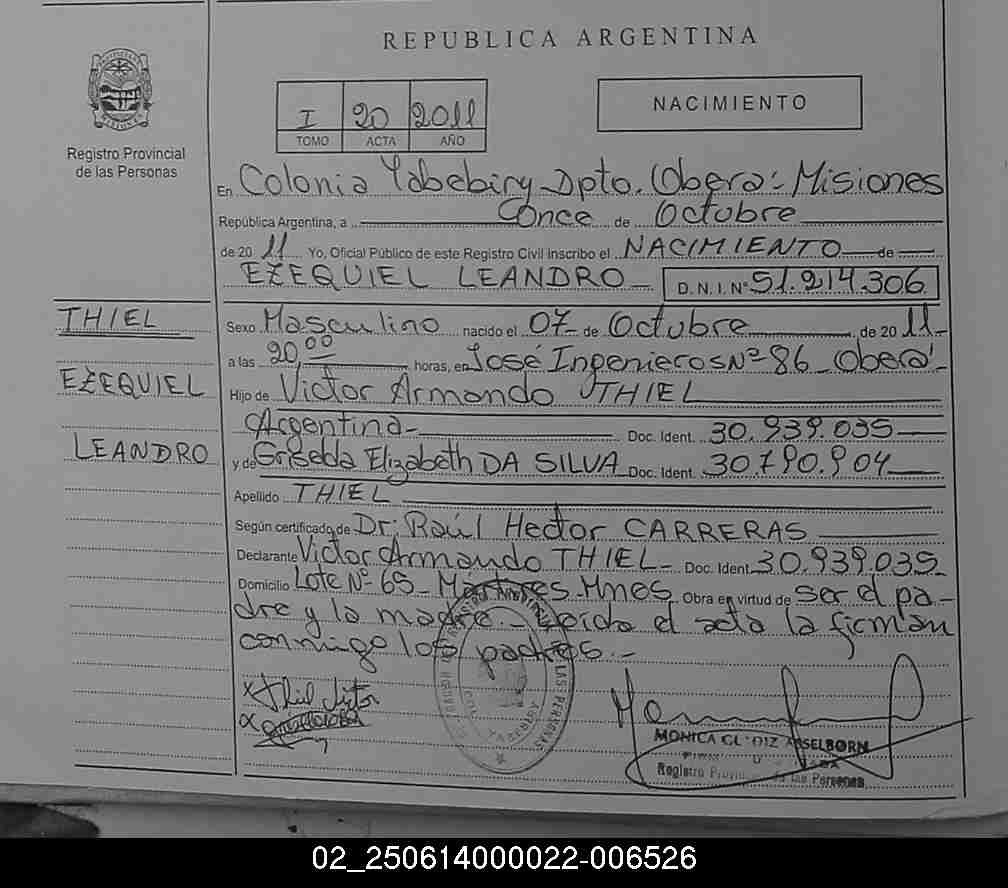 REPUBLICA ARGENTINA
Registro Provincial
de las Personas
I 20 2011
TOMO ACTA AÑO
NACIMIENTO
En Colonia Yabebiry Dpto. Oberá - Misiones
República Argentina, a Once de Octubre
de 20 11 Yo, Oficial Público de este Registro Civil Inscribo el NACIMIENTO de
EZEQUIEL LEANDRO D. N. I. Nº 51.214.306
THIEL
EZEQUIEL
LEANDRO
Sexo Masculino nacido el 07 de Octubre de 20 11
a las 20 00 horas, en José Ingenieros Nº 86 - Oberá
Hijo de Victor Armando THIEL
Argentina Doc. Ident. 30.939.035
y de Griselda Elizabeth DA SILVA Doc. Ident. 30.790.904
Apellido THIEL
Según certificado de Dr. Raúl Hector CARRERAS
Declarante Victor Armando THIEL Doc. Ident. 30.939.035
Domicilio Lote Nº 65 - Mártires - Mnes Obra en virtud de ser el pa-
dre y la madre. - Leída el acta la firman
conmigo los padres. -
Thiel Victor
MONICA
Registro de las Personas
02_250614000022-006526